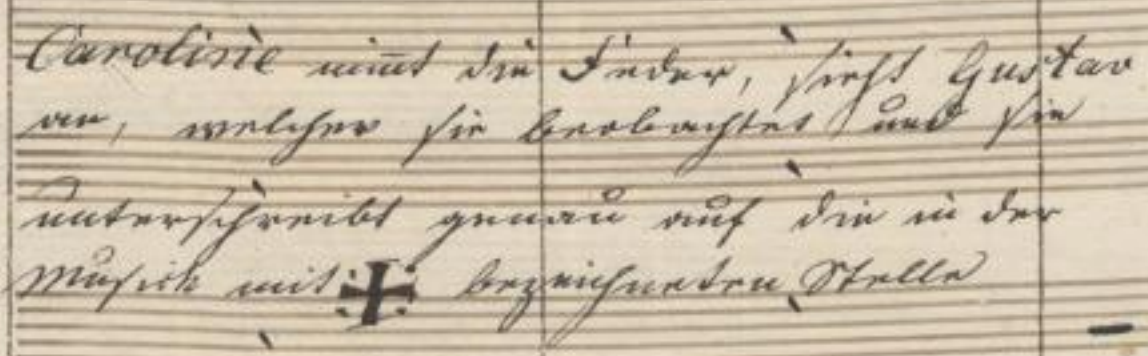 Caroline nim̅t die Feder, sieht Gustav
an, welcher sie beobachtet und sie
unterschreibt genau auf die in der
Musick mit ·𝄌· bezeichneten Stelle